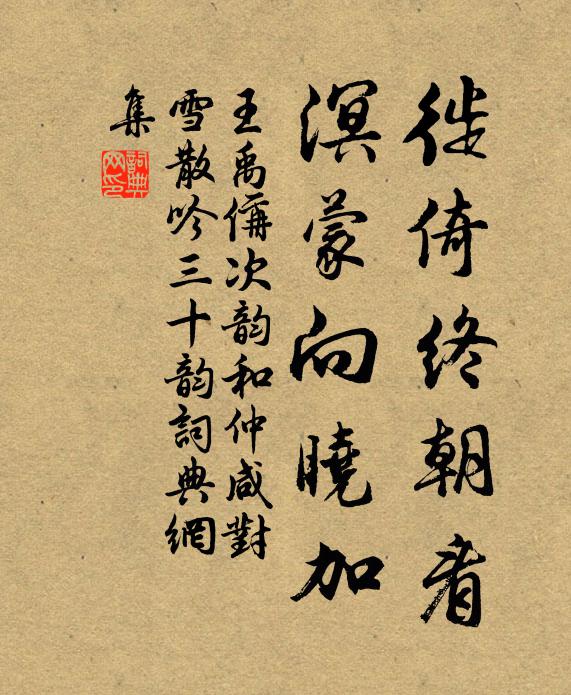 徙倚終朝看
溟蒙向曉加
王禹偁次韵和仲咸對
雪散吟三十韵詞典網
集
詞典網印